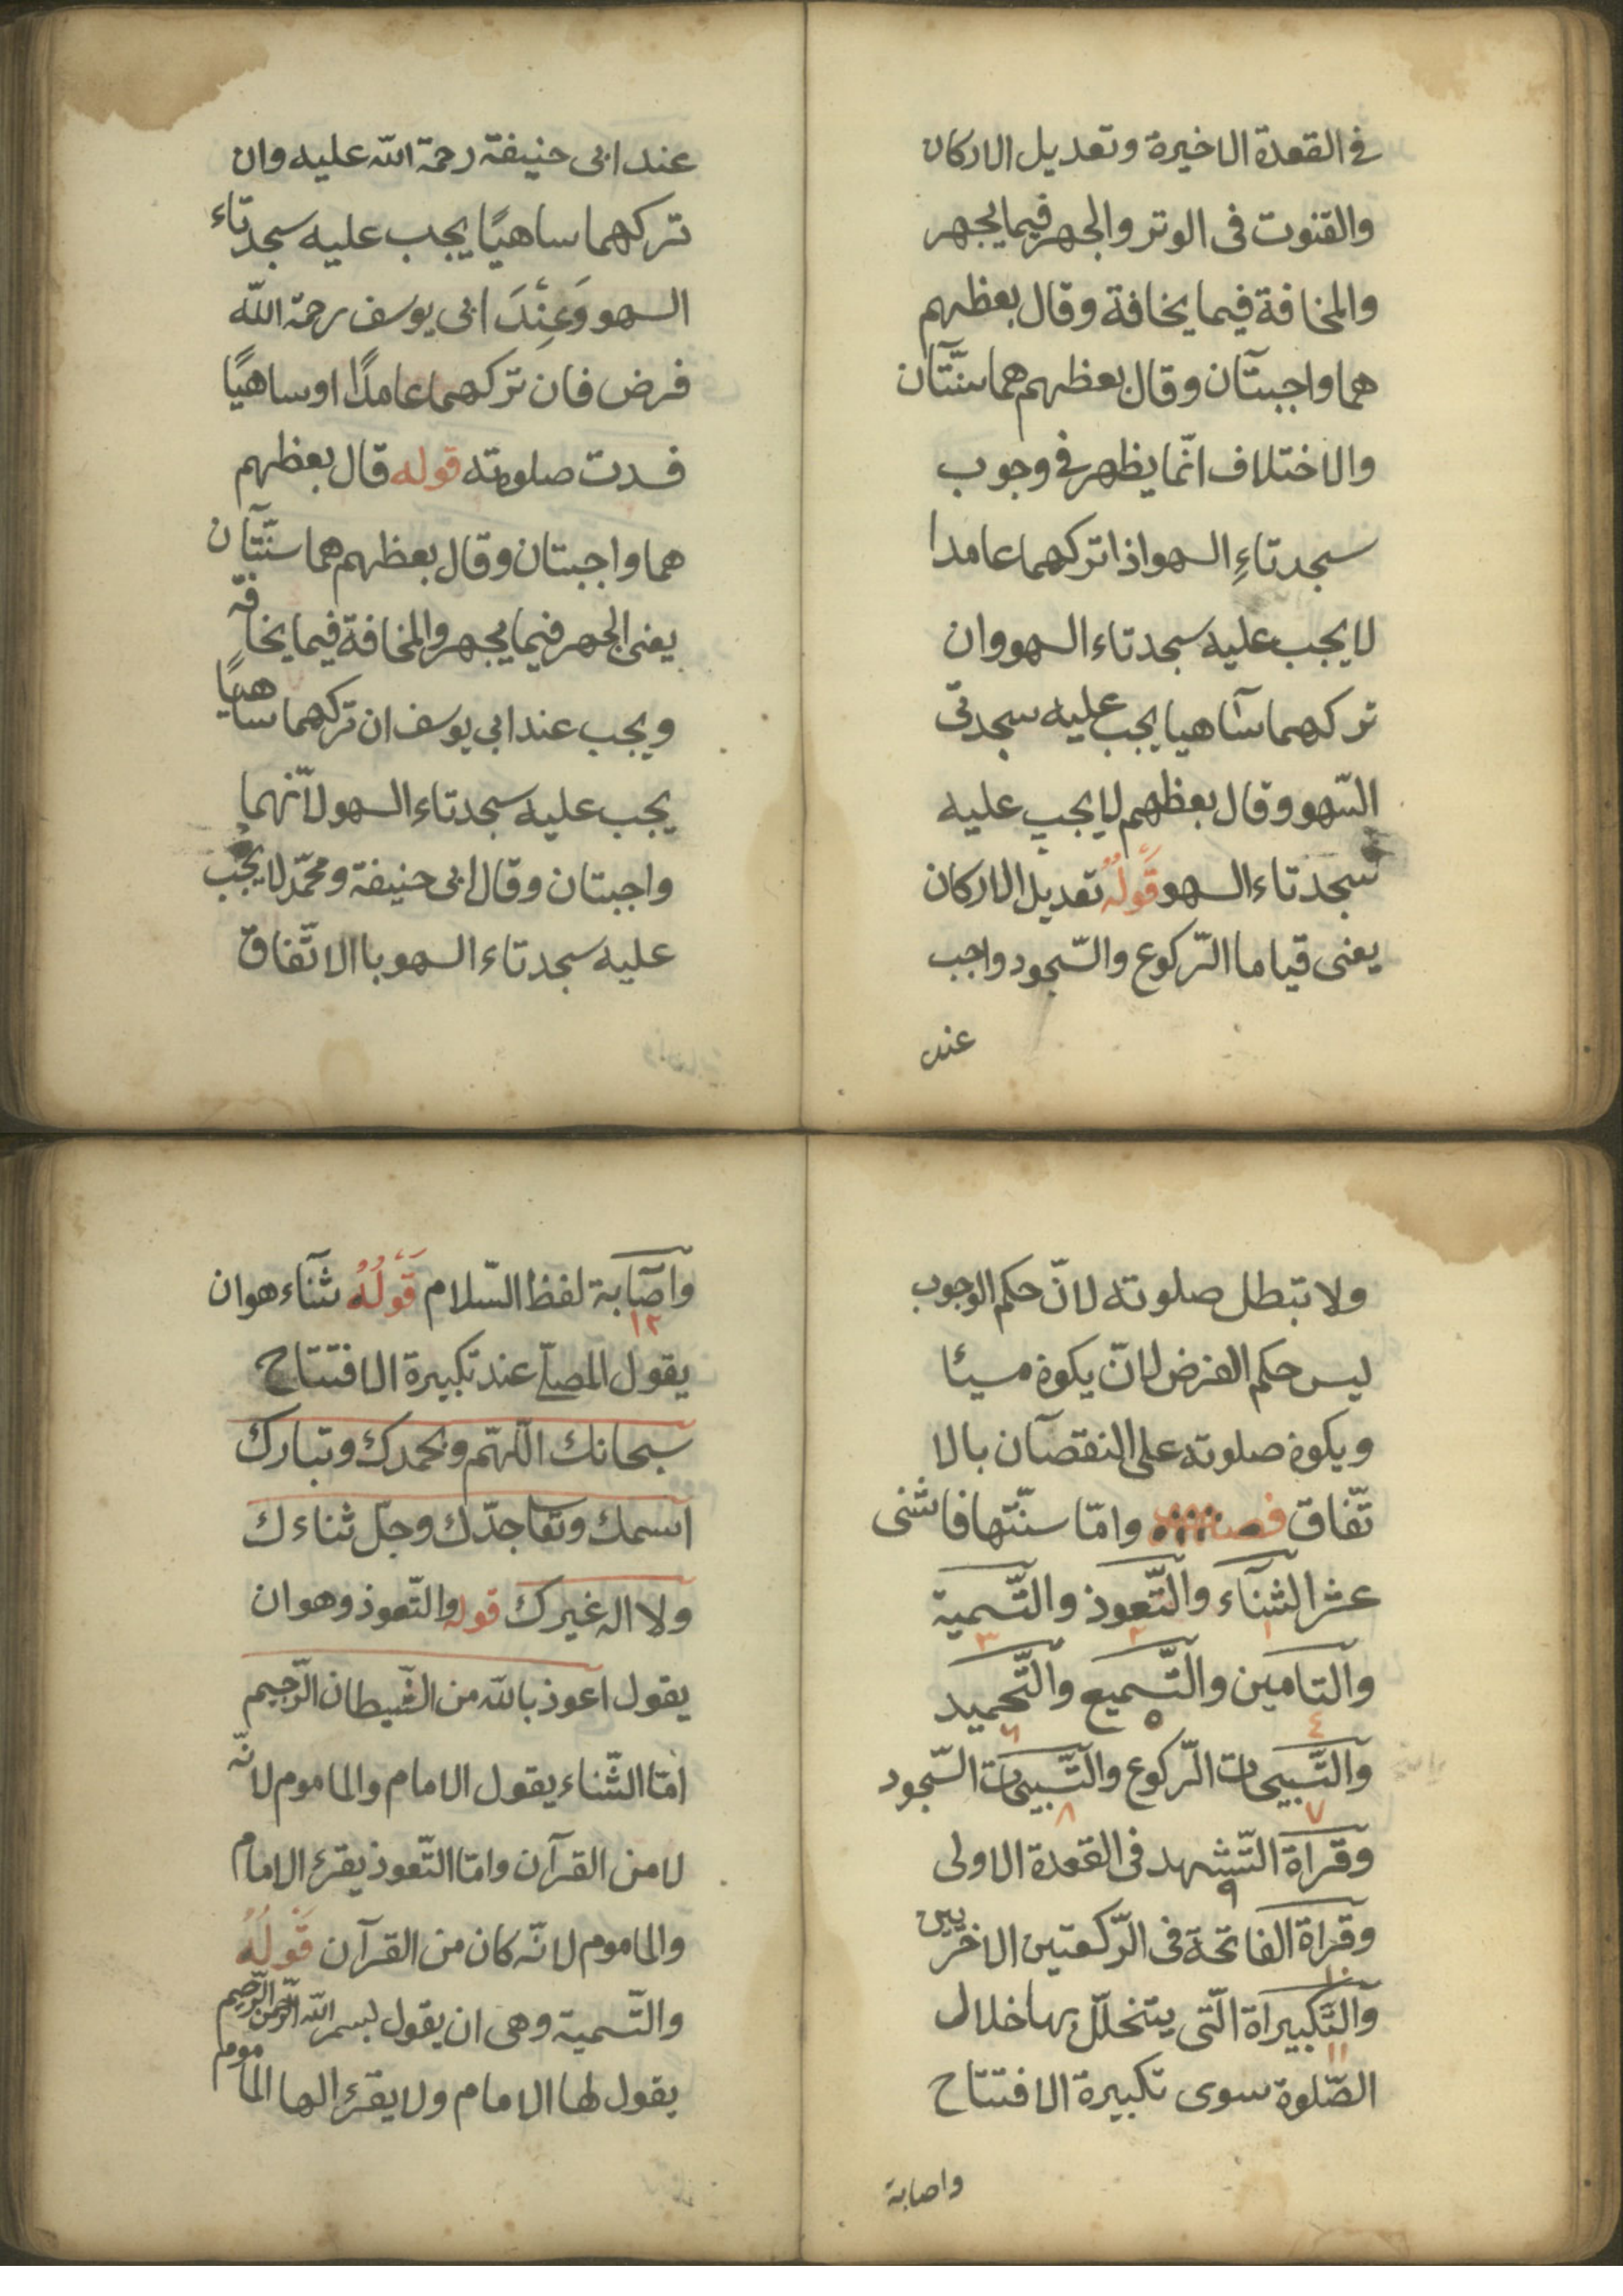 في القعدة الاخيرة وتعديل الاركان
والقنوت فى الوتر والجهر فيما يجهر
والمخافة فيما يخافة وقال بعظهم
هما واجبتآن وقال بعظهم هما سنّتآن
والاختلاف انّما يظهر في وجوب
سجدتاءِ السهو اذا تركهما عامدا
لا يجب عليه سجدتاء السهو وان
تركهما سآاهيا يجب عليه سجدتى
السّهو وقال بعظهم لا يجب عليه
سجدتاء السهو قَولُهُ تعديل الاركان
يعنى قياما الرّكوع والسّجود واجب
عند
عند ابى حنيفة رحمة الله عليه وان
تركهما ساهيًا يجب عليه سجدتاء
السهو وَعِنْدَ ابى يوسف رحمة اللّه
فرض فان تركهما عامدًا او ساهيًا
فسدت صلوته قوله قال بعظهم
هما واجبتان وقال بعظهم هما سنّتآن
يعنى الجهر فيما يجهر والمخافة فيما يخافة
ويجب عند ابى يوسف ان تركهما ساهيًا
يجب عليه سجدتاء السهو لانّهما
واجبتان وقال ابى حنيفة ومحمّد لا يجب
عليه سجدتاء السهو باالاتّفاق
ولا تبطل صلوته لانّ حكم الوجوب
ليس حكم الفرض لانّ يكون مسيئا
ويكون صلوته على النقصآن بالا
تّفاق فصل وامّا سنّتها فاثنى
عشر الثنآء والتّعوذ والتّسمية
١ ٢ ٣
والتامين والتّسميع والتّحميد
٤ ٥ ٦
والتّسبيحات الرّكوع والتّسبيحات السّجود
٧ ٨
وقراة التّشهد فى القعدة الاولى
٩
وقراة الفاتحة فى الرّكعتين الاخريين
١٠
والتّكبيرآة الّتى يتخلّل بها خلال
١١
الصّلوة سوى تكبيرة الافتتاح
واصابة
واصآبة لفظ السّلام قَولُهُ ثنآء هو ان
١٢
يقول المصلّى عند تكبيرة الافتتاح
سبحانك اللّهمّ وبحمدك وتبارك
اسمك وتعا جدّك وجلّ ثناءك
ولا اله غيرك قوله والتّعوذ وهو ان
يقول اعوذ بالله من الشّيطان الرّجيم
امّا الثّناء يقول الامام والماموم لانّه
لا من القرآن وامّا التّعوذ يقرء الامام
والماموم لانّه كان من القرآن قَولُهُ
والتّسمية وهى ان يقول بسم اللّه الرّحمن الرّحيم
يقول لها الامام ولا يقرء الها الماموم